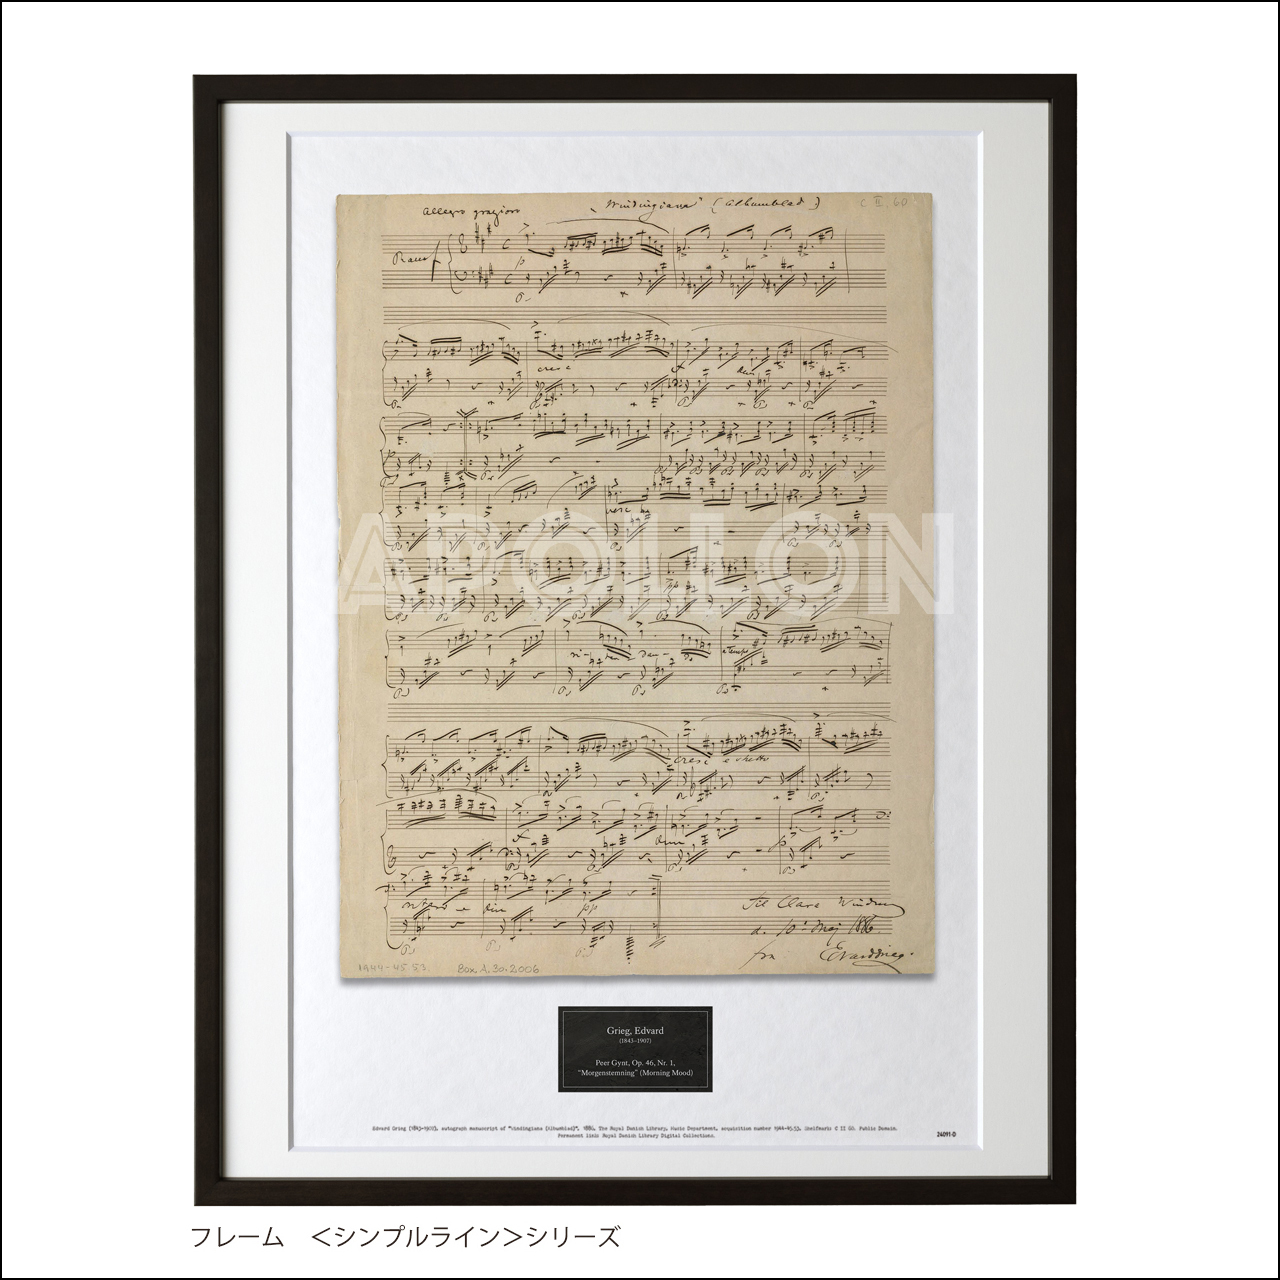 Allegro grazioso
"Windingiana" (Albumblad)
C II, 60
cresc
dim
cresc
pp
a Tempo
cresc
dim
dim
pp
Til Clara
d. 10de Maj 1886.
fra Edvard Grieg.
1944-45.53.
Box A 30. 2006
APOLLON
Grieg, Edvard
(1843–1907)
Peer Gynt, Op. 46, Nr. 1,
"Morgenstemning" (Morning Mood)
Edvard Grieg (1843–1907), autograph manuscript of "Windingiana (Albumblad)", 1886, The Royal Danish Library, Music Department, acquisition number 1944-45.53, Shelfmark: C II 60. Public Domain.
Permanent link: Royal Danish Library Digital Collections.
24091-D
フレーム　＜シンプルライン＞シリーズ